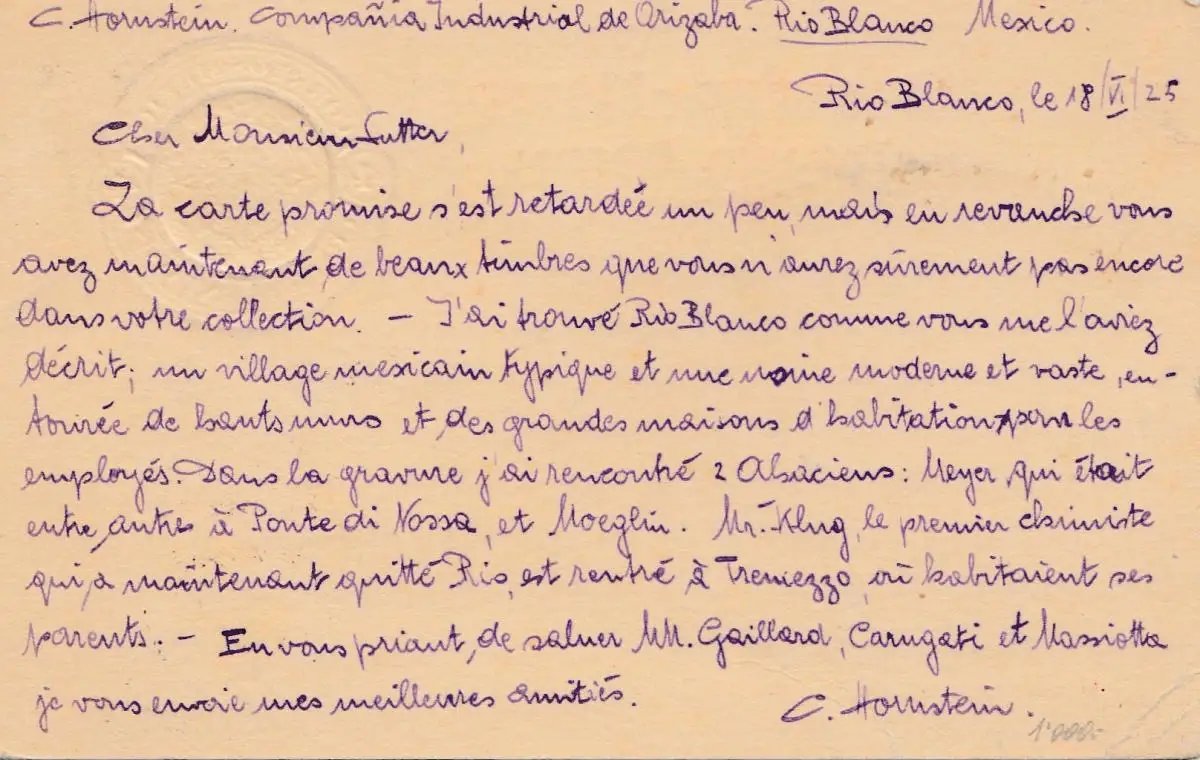 C. Hornstein. Compañia Industrial de Orizaba. Rio Blanco Mexico.
Rio Blanco, le 18/VI/25
Cher Monsieur Sutter,
La carte promise s'est retardée un peu, mais en revanche vous
avez maintenant de beaux timbres que vous n'aurez sûrement pas encore
dans votre collection. — J'ai trouvé Rio Blanco comme vous me l'aviez
décrit; un village mexicain typique et une usine moderne et vaste, en-
tourée de hauts murs et des grandes maisons d'habitation pour les
employés. Dans la gravure j'ai rencontré 2 Alsaciens: Meyer, qui était
entre autres à Ponte di Nossa, et Moeglin. Mr. Klug, le premier chimiste
qui a maintenant quitté Rio, est rentré à Tremezzo, où habitaient ses
parents. — En vous priant, de saluer MM. Gaillard, Carugati et Massiotta
je vous envoie mes meilleures amitiés. C. Hornstein.
1'000.-